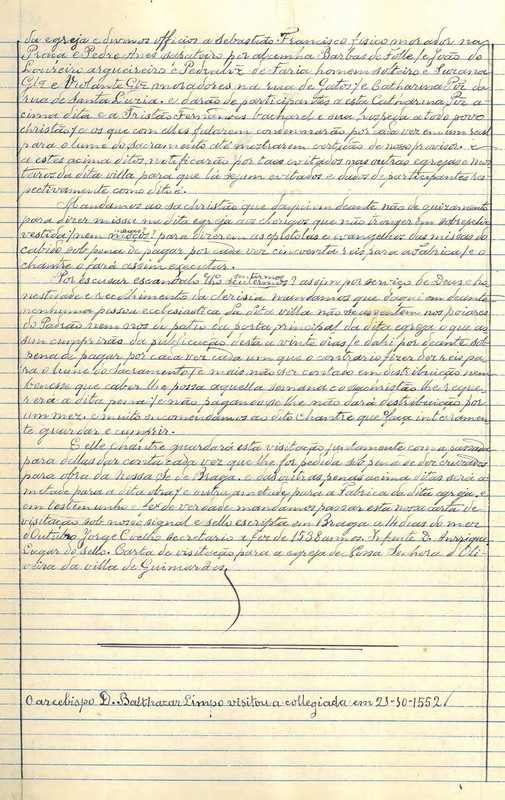 da egreja e divinos officios a Sebastião Francisco fisico morador na
Praça e Pedre Anes sapateiro por alcunha Barbas de Folle / e João do
Loureiro arqueireiro e Pedralvz de Faria homem solteiro e Suzana
Glz e Violante Glz moradores na rua de Gatos / e Catharina Piz da
rua de Santa Luzia. e darão de participantes a esta Catharina Piz a
cima dita e a Tristão Fernandes bacharel e sua hospeda a todo povo
christão / e os que com elles falarem condemnarão por cada vez em um real
para o lume do sacramento até mostrarem certidão de nosso provisor. e
a estes acima ditos notificarão por taes evitados nas outras egrejas e mos
teiros da dita villa para que lá sejam evitados e dados de participantes res
pectivamente como dito é.
Mandamos ao sachristão que daqui em deante não dê ouramento
para dizer missa na dita egreja aos clerigos que não trouxerem sobrepeliz
vestida / nem para dizerem as epistolas e evangelhos das missas do
cabido sob pena de pagar por cada vez cincoenta réis para a fabrica / e o
chantre o fará assim executar.
Por escusar escandalo que sentirmos ? assim por serviço de Deus e ho
nestidade e recolhimento da clerisia mandamos que daqui em deante
nenhuma pessoa ecclesiastica da dita villa não se assentem nos poiares
do Padrão nem nos do patio da porta principal da dita egreja o que as
sim cumprirão da publicação desta a vinte dias / e dahi por deante sob
pena de pagar por cada vez cada um que o contrario fizer dez réis pa
ra o lume do Sacramento / e mais não ser contado em distribuição nem
benesse que caber lhe possa aquella semana e o sachristão lhe reque
rerá a dita pena / e não pagando se lhe não dará destribuição por
um mez. e muito encomendamos ao dito chantre que faça inteiramen
te guardar e cumprir.
E elle chantre guardará esta visitação juntamente com a passada
para dellas dar conta cada vez que lhe for pedida sob pena de dez cruzados
para obra da nossa Sé de Braga. e das outras penas acima ditas será a
metade para a dita obra / e outra ametade para a Fabrica da dita egreja. e
em testemunho e fez de verdade mandamos passar esta nossa carta de
visitação sob nosso signal e sello escripta em Braga a dias do mez
d'Outubro Jorge Coelho Secretario a fez de 1538 annos. Infante D. Anrrique.
Logar do sello. Carta de visitação para a egreja de Nossa Senhora d'Oli
veira da villa de Guimarães.
O arcebispo D. Balthazar Limpo visitou a collegiada em 21-10-1552 /